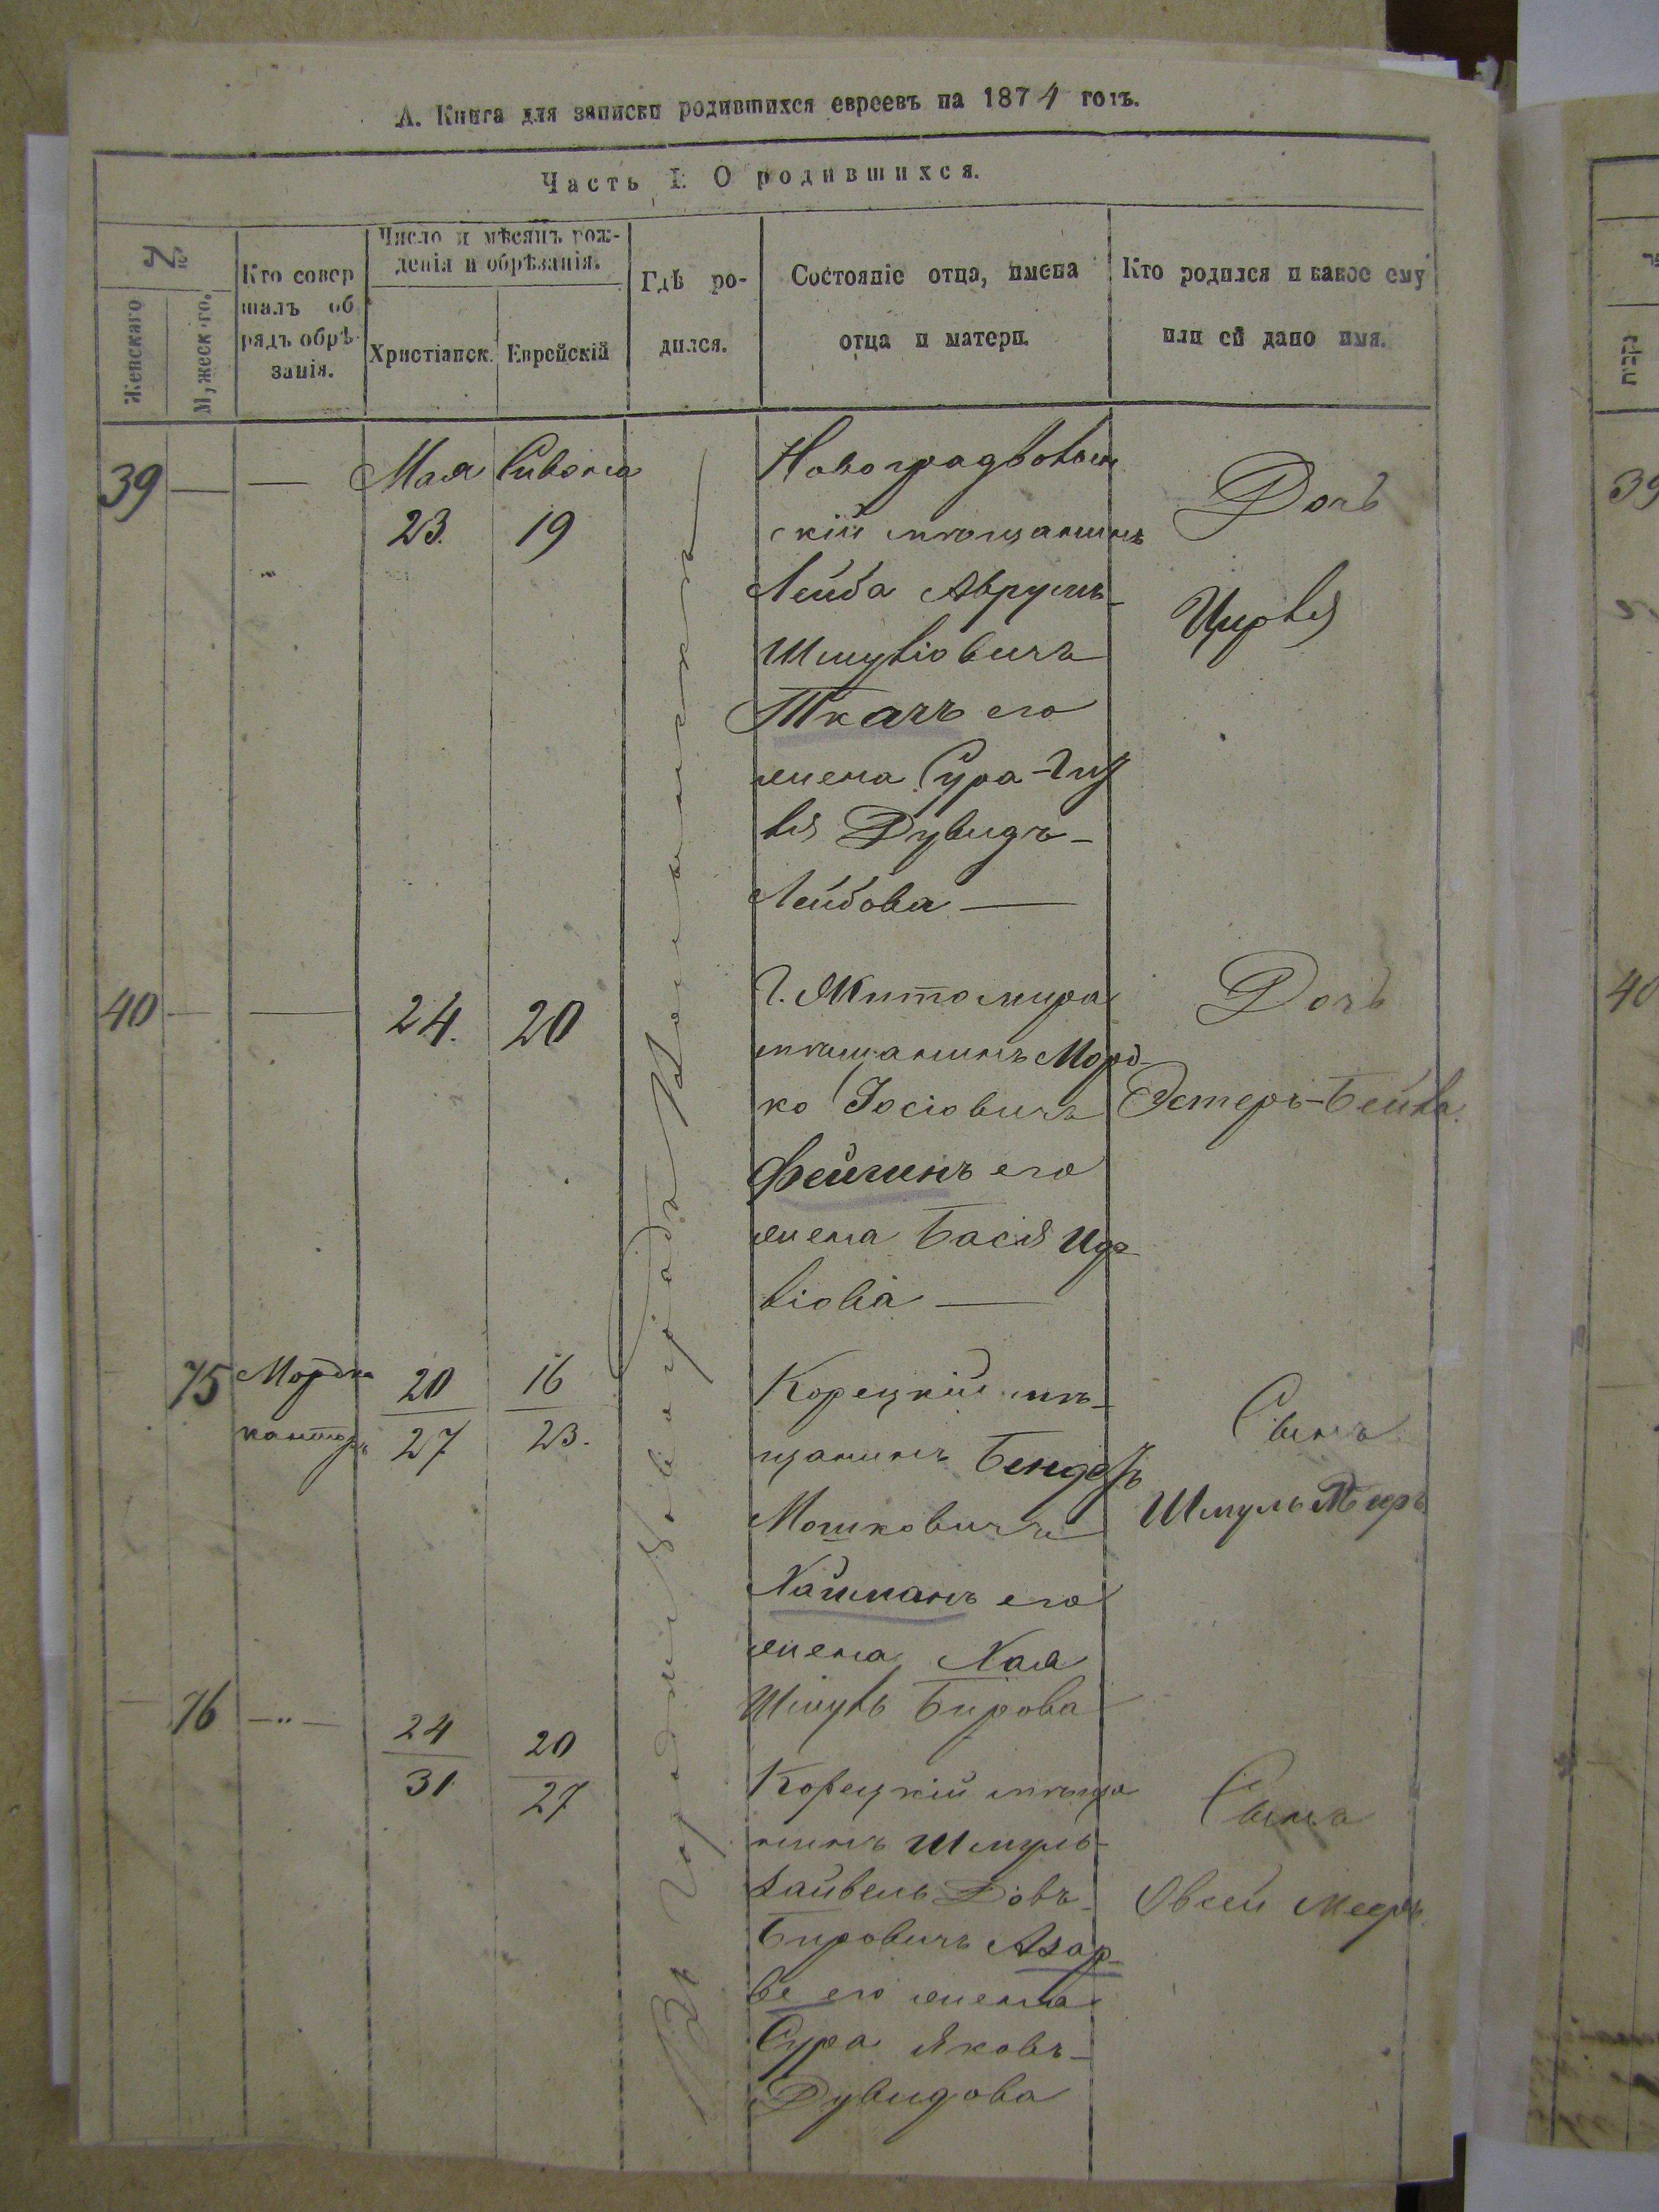 А. Книга для записки родившихся евреевъ на 1874 годъ.
Часть I. О родившихся.
№
Женскаго
Мужеск-го.
Кто совер
шалъ об
рядъ обрѣ-
занія.
Число и мѣсяцъ рож-
денія и обрѣзанія.
Христіанск.
Еврейскій
Гдѣ ро-
дился.
Состояніе отца, имена
отца и матери.
Кто родился и какое ему
или ей дано имя.
Въ Городѣ Новоградъ Волынскѣ
39 — — Мая Сивона
23. 19
Новоградволын
скій мѣщанинъ
Лейба Аврумъ-
Шмулiовичъ
Ткачъ его
жена Сура-
Дувидъ-
Лейбова —
Дочь
40 — — 24. 20
Г. Житомира
мѣщанинъ Морд-
ко Іосiовичъ
Фейгинъ его
жена Бася
—
Дочь
Эстеръ-Бейла.
75 Мордко
канторъ
20
27
16
23.
Корецкій мѣ-
щанинъ Бендеръ
Мошковичъ
Хайманъ его
жена Хая
Шмуль Бирова
Сынъ
Шмуль Биръ
76 —"—
24
31
20
27
Корецкій мѣща
нинъ Шмуль-
Файвель Довъ-
Бировичъ Азар-
ве его жена
Сура Яковъ-
Дувидова
Сынъ
Овсей Мееръ.
39
40